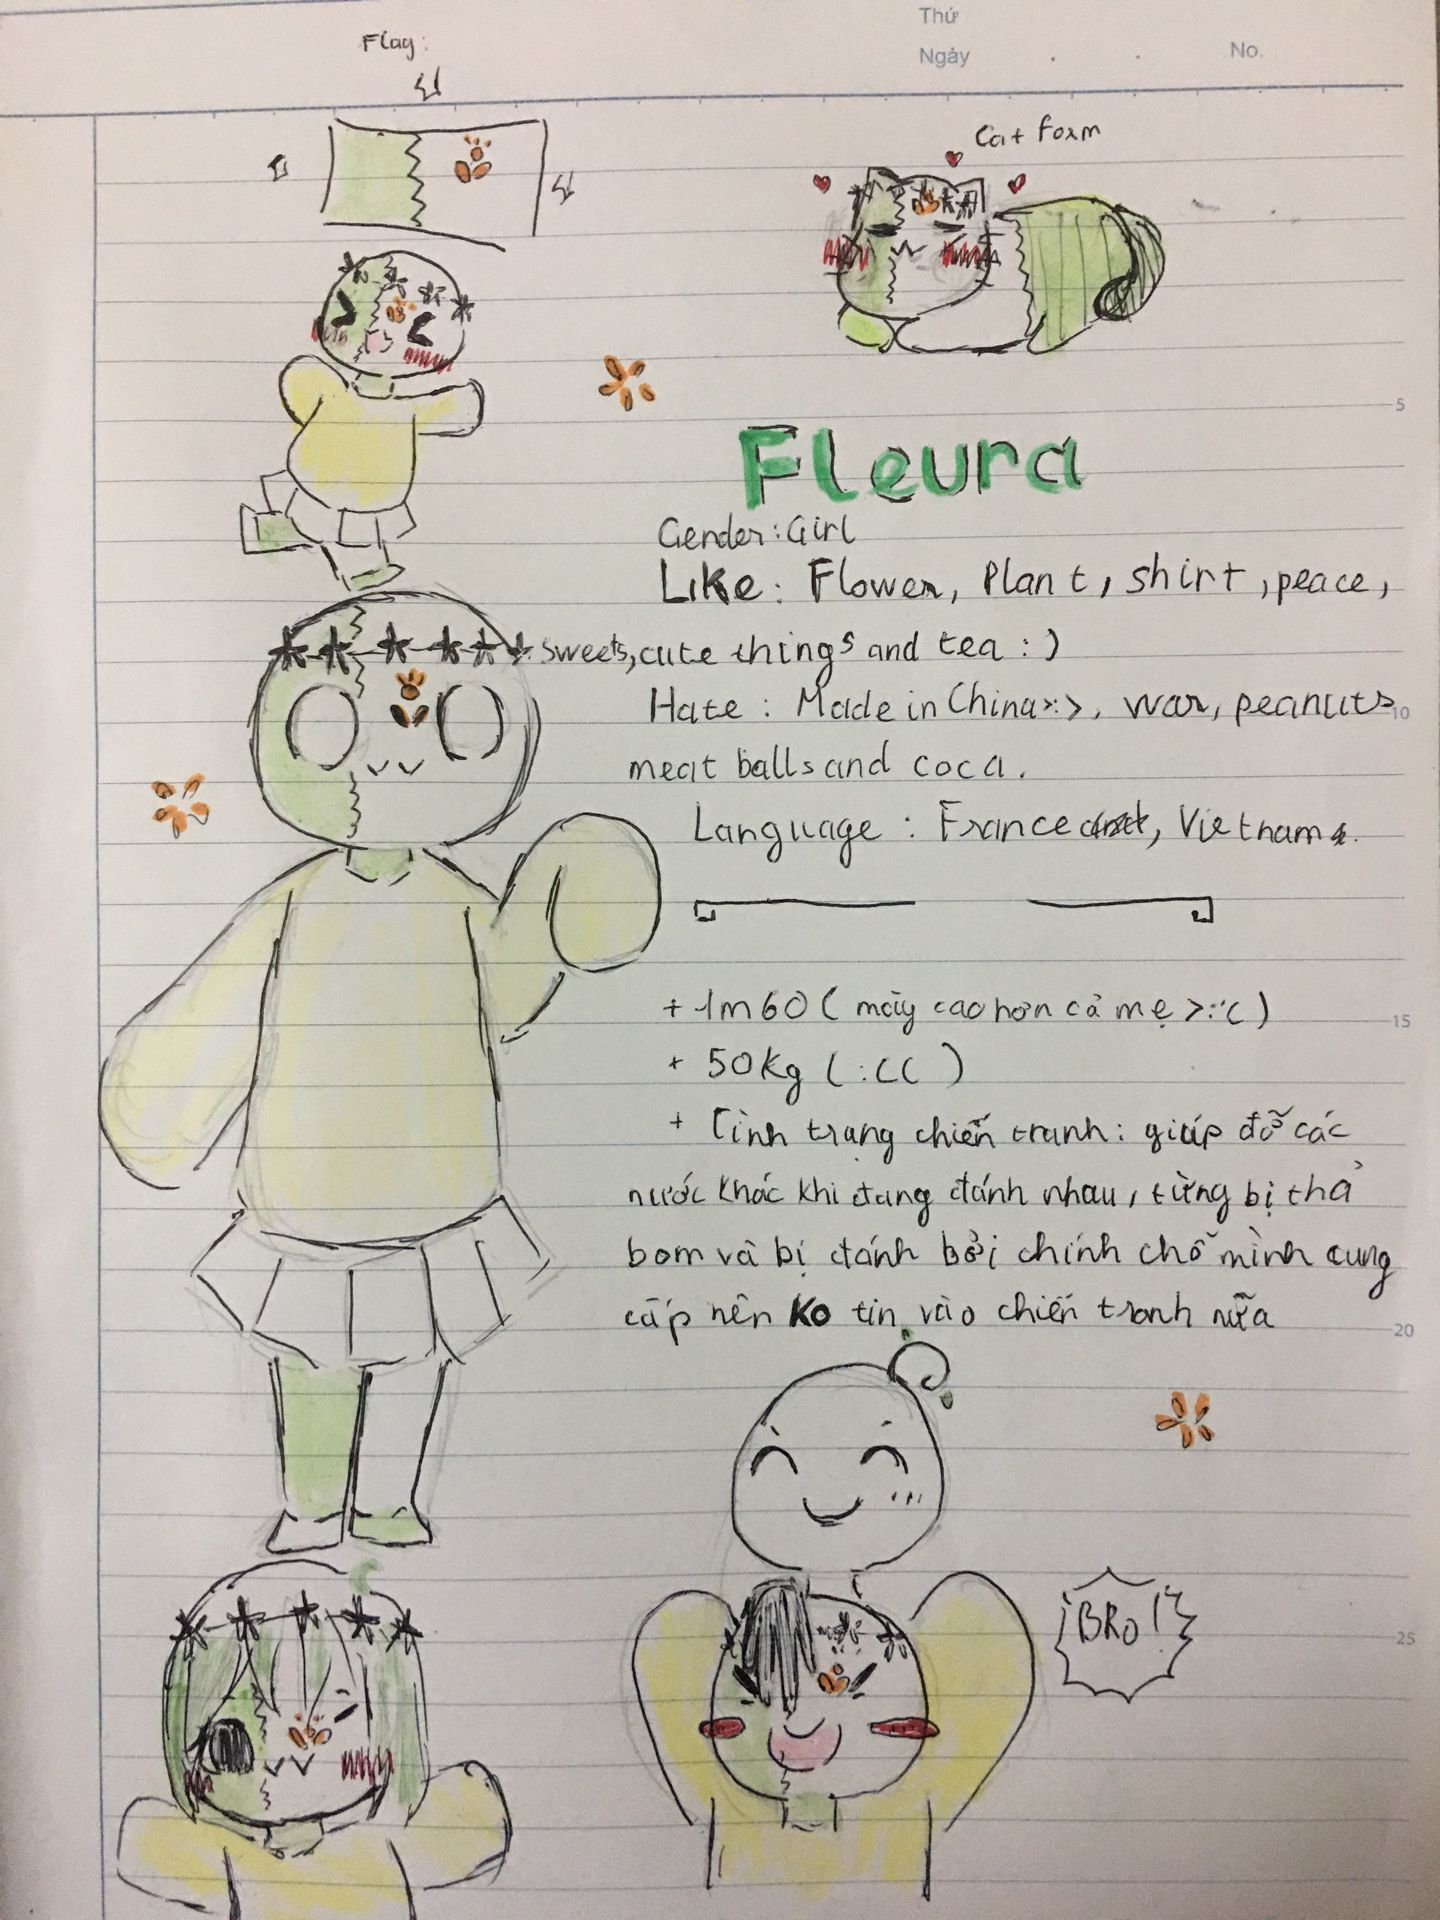 Thứ
Ngày
No.
Flag:
Cat Form
5
Fleura
Gender: Girl
Like: Flower, Plant, shirt, peace,
sweets, cute things and tea :)
Hate: Made in China >:>, war, peanuts
10
meat balls and coca.
Language: France, Vietnam
+ 1m60 (mày cao hơn cả mẹ >:'( )
15
+ 50kg (:(( )
+ Tình trạng chiến tranh: giúp đỡ các
nước khác khi đang đánh nhau, từng bị thả
bom và bị đánh bởi chính chỗ mình cung
cấp nên ko tin vào chiến tranh nữa
20
¡BRO!
25